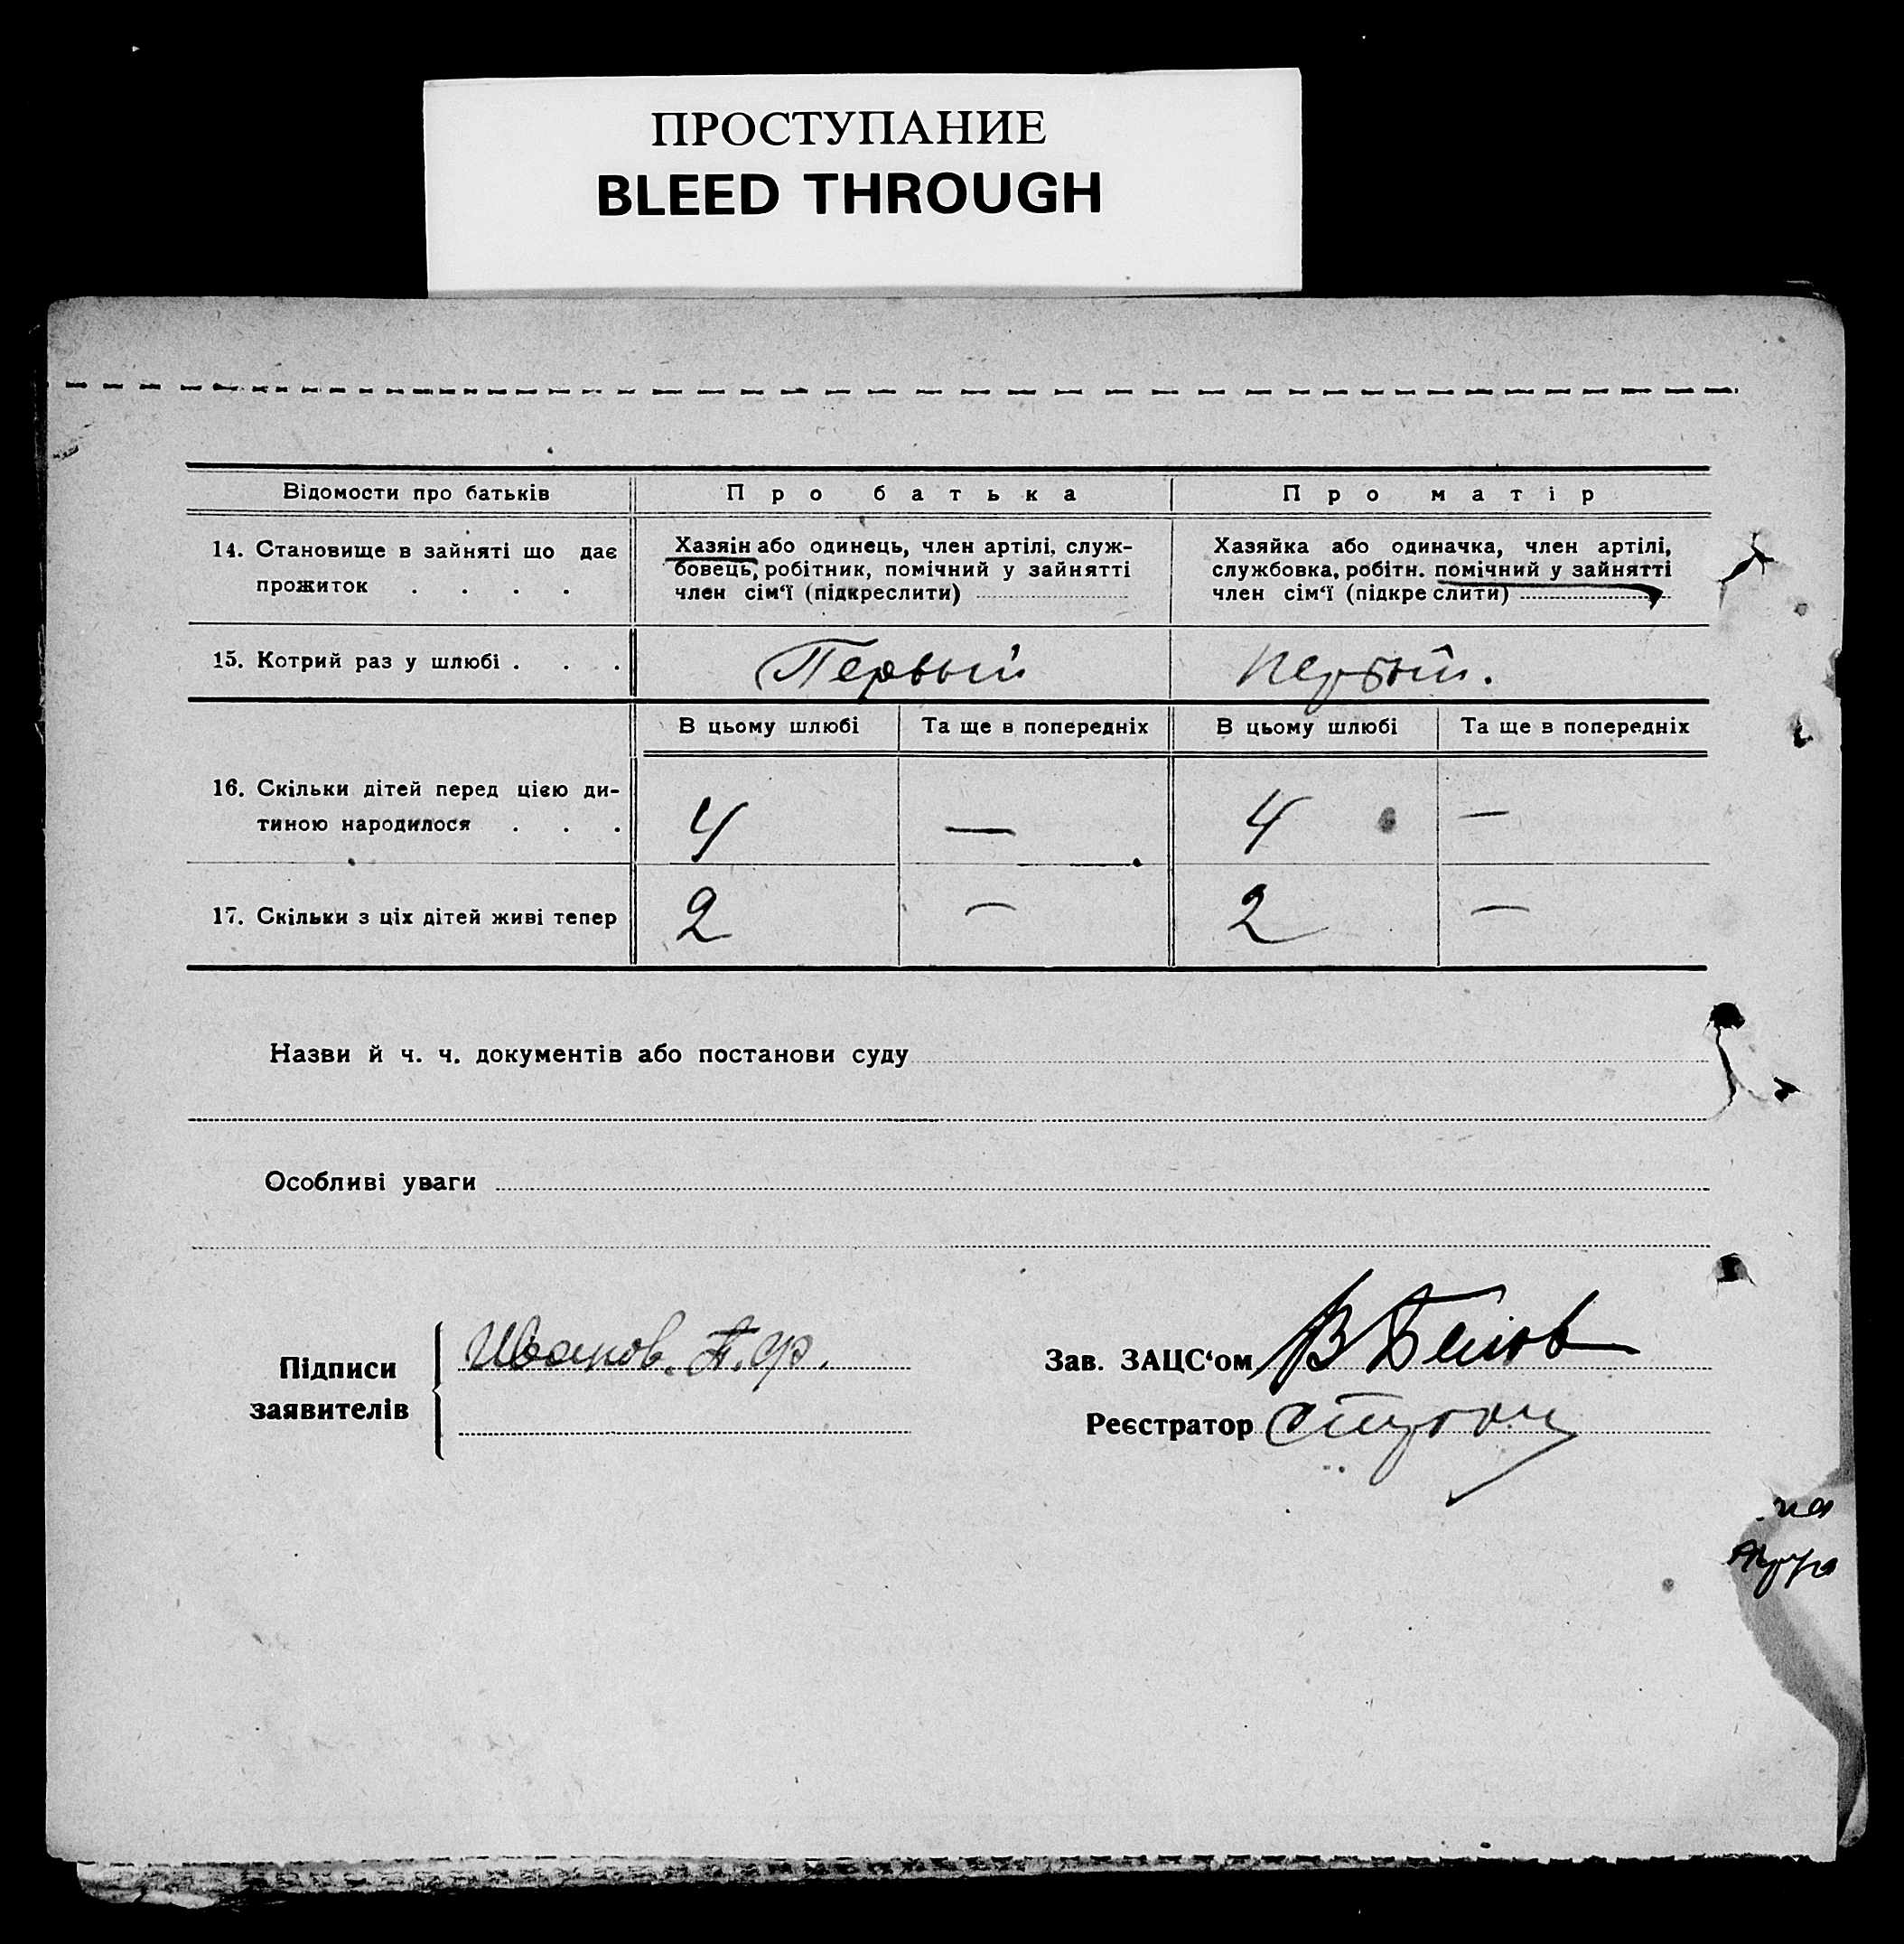 ПРОСТУПАНИЕ
BLEED THROUGH
Відомости про батьків Про батька Про матір
14. Становище в зайняті що дає
прожиток . . . .
Хазяін або одинець, член артілі, служ-
бовець, робітник, помічний у зайнятті
член сім‘ї (підкреслити)
Хазяйка або одиначка, член артілі,
службовка, робітн. помічний у зайнятті
член сім‘ї (підкреслити)
15. Котрий раз у шлюбі . . . Первый первый.
В цьому шлюбі Та ще в попередніх В цьому шлюбі Та ще в попередніх
16. Скільки дітей перед цією ди-
тиною народилося . . . 4 — 4 —
17. Скільки з ціх дітей живі тепер 2 — 2 —
Назви й ч. ч. документів або постанови суду
Особливі уваги
Підписи
заявителів
Иванов. П. Ф.
Зав. ЗАЦС‘ом В Белов
Реєстратор
на